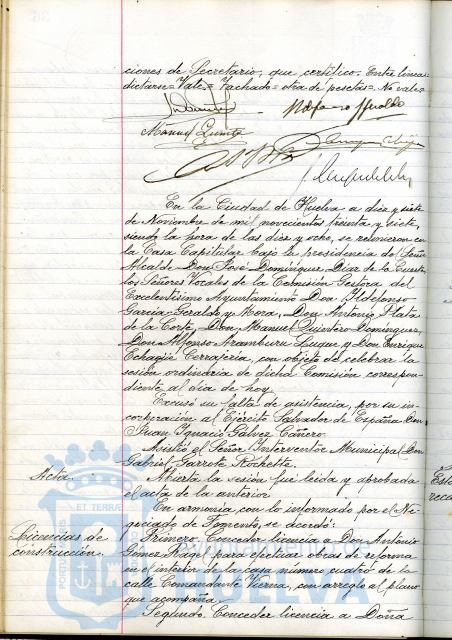 ciones de Secretario, que certifico. Entre líneas:
dictarse= Vale.= Tachado= otra de pesetas= No vale=
Manuel Quintero
En la Ciudad de Huelva a diez y siete
de Noviembre de mil novecientos treinta y siete,
siendo la hora de las diez y ocho, se reunieron en
la Casa Capitular bajo la presidencia del Señor
Alcalde Don José Domínguez Díaz de la Cuesta
los Señores Vocales de la Comisión Gestora del
Excelentísimo Ayuntamiento Don Ildefonso
García Geraldo y Mora, Don Antonio Plata
de la Corte, Don Manuel Quintero Domínguez,
Don Alfonso Aramburu Luque y Don Enrique
Echagüe Cerrajería, con objeto de celebrar la
sesión ordinaria de dicha Comisión correspon-
diente al día de hoy.
Excusó su falta de asistencia, por su in-
corporación al Ejército Salvador de España Don
Juan Ignacio Gálvez Cañero.
Asistió el Señor Interventor Municipal Don
Gabriel Garrote Rochette.
Acta.
Abierta la sesión fué leída y aprobada
el acta de la anterior.
En armonía con lo informado por el Ne-
gociado de Fomento, se acordó:
Licencias de
construcción.
Primero. Conceder licencia a Don Antonio
Gómez Raq para efectuar obras de reforma
en el interior de la casa número cuatro de la
calle Comandante Vierna, con arreglo al plano
que acompaña.
Segundo. Conceder licencia a Doña
ET TERRAE
PORTUS MARIS